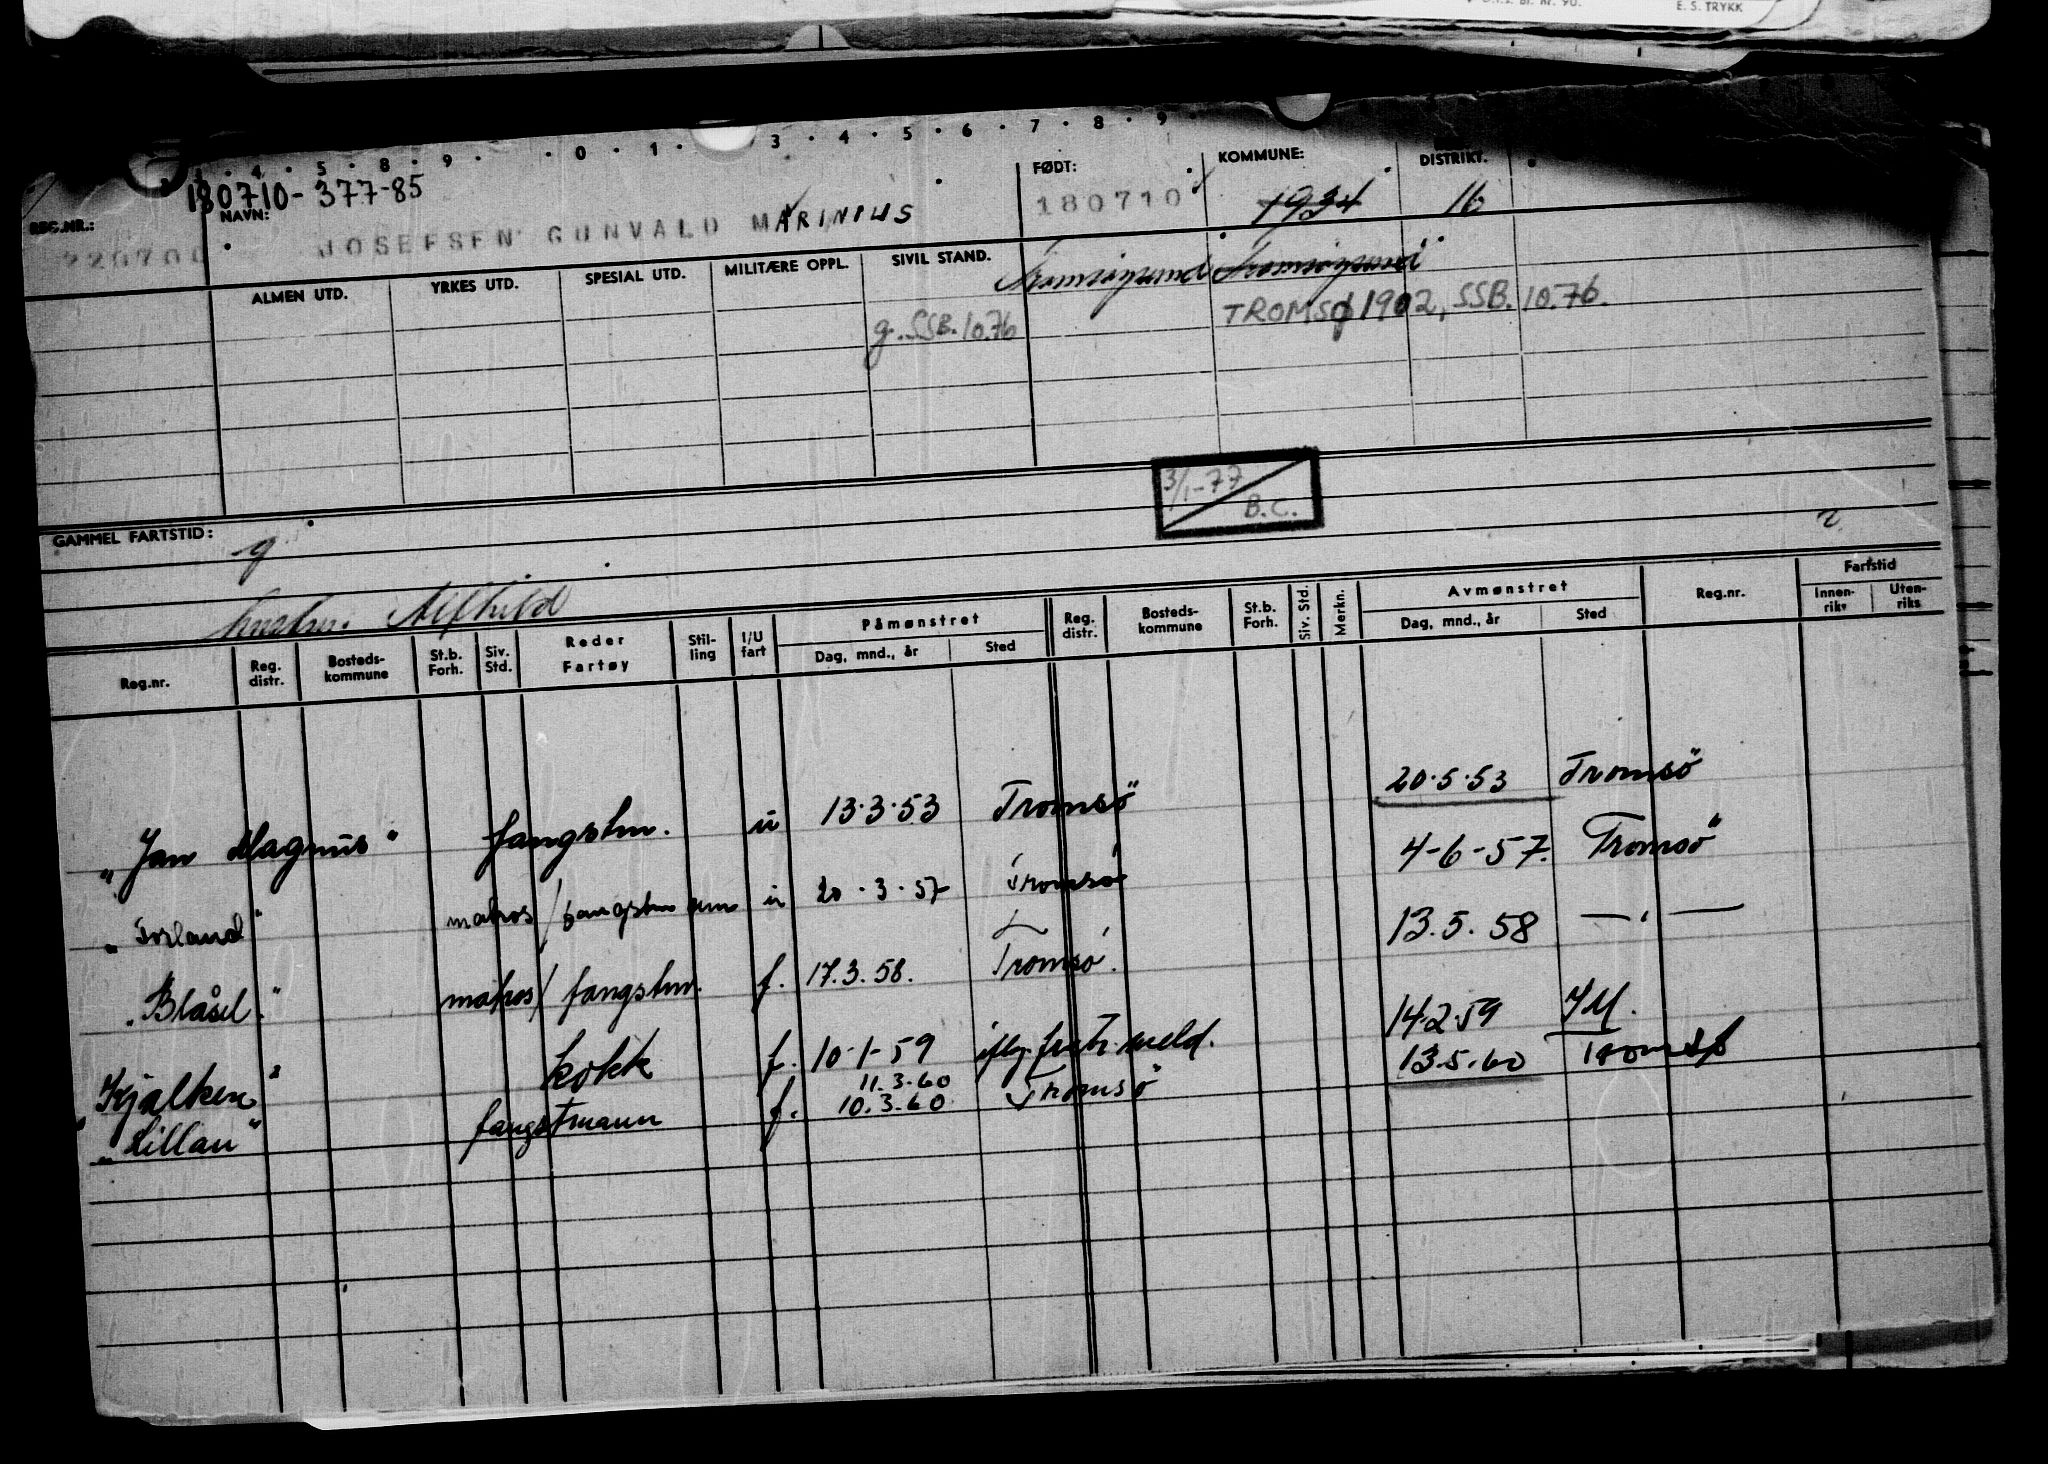 E. S. TRYKK
3 · 4 · 5 · 8 · 9 · · 0 · 1 · 3 · 4 · 5 · 6 · 7 · 8 · 9 ·
180710-377-85
REG.NR.: NAVN: FØDT: KOMMUNE: DISTRIKT.
JOSEFSEN GUNVALD MARINIUS 180710 1934 16
ALMEN UTD. YRKES UTD. SPESIAL UTD. MILITÆRE OPPL. SIVIL STAND. Tromsøysund Tromsøysund
g. SSB. 10.76 TROMSØ 1902, SSB. 10.76.
3/1-77
B.C.
GAMMEL FARTSTID: g
hustru: Alfhild
Reg.nr. Reg. distr. Bosteds-kommune St.b. Forh. Siv. Std. Reder Fartøy Stil-ling I/U fart Påmønstret Dag, mnd., år Sted Reg. distr. Bosteds-kommune St.b. Forh. Siv. Std. Merkn. Avmønstret Dag, mnd., år Sted Reg.nr. Fartstid Innen-riks Uten-riks
"Jan Magnus" fangstm. u 13.3.53 Tromsö 20.5.53 Tromsö
"Forland" matros/fangstmann u 20.3.57 Tromsö 4-6-57. Tromsö
"Blåsel" matros/fangstm. f. 17.3.58. Tromsö. 13.5.58 — " —
"Kjalken" kokk f. 10-1-59 iflg. meld. 14.2.59
11.3.60
"Lillan" fangstmann f. 10.3.60 Tromsö 13.5.60 Tromsø